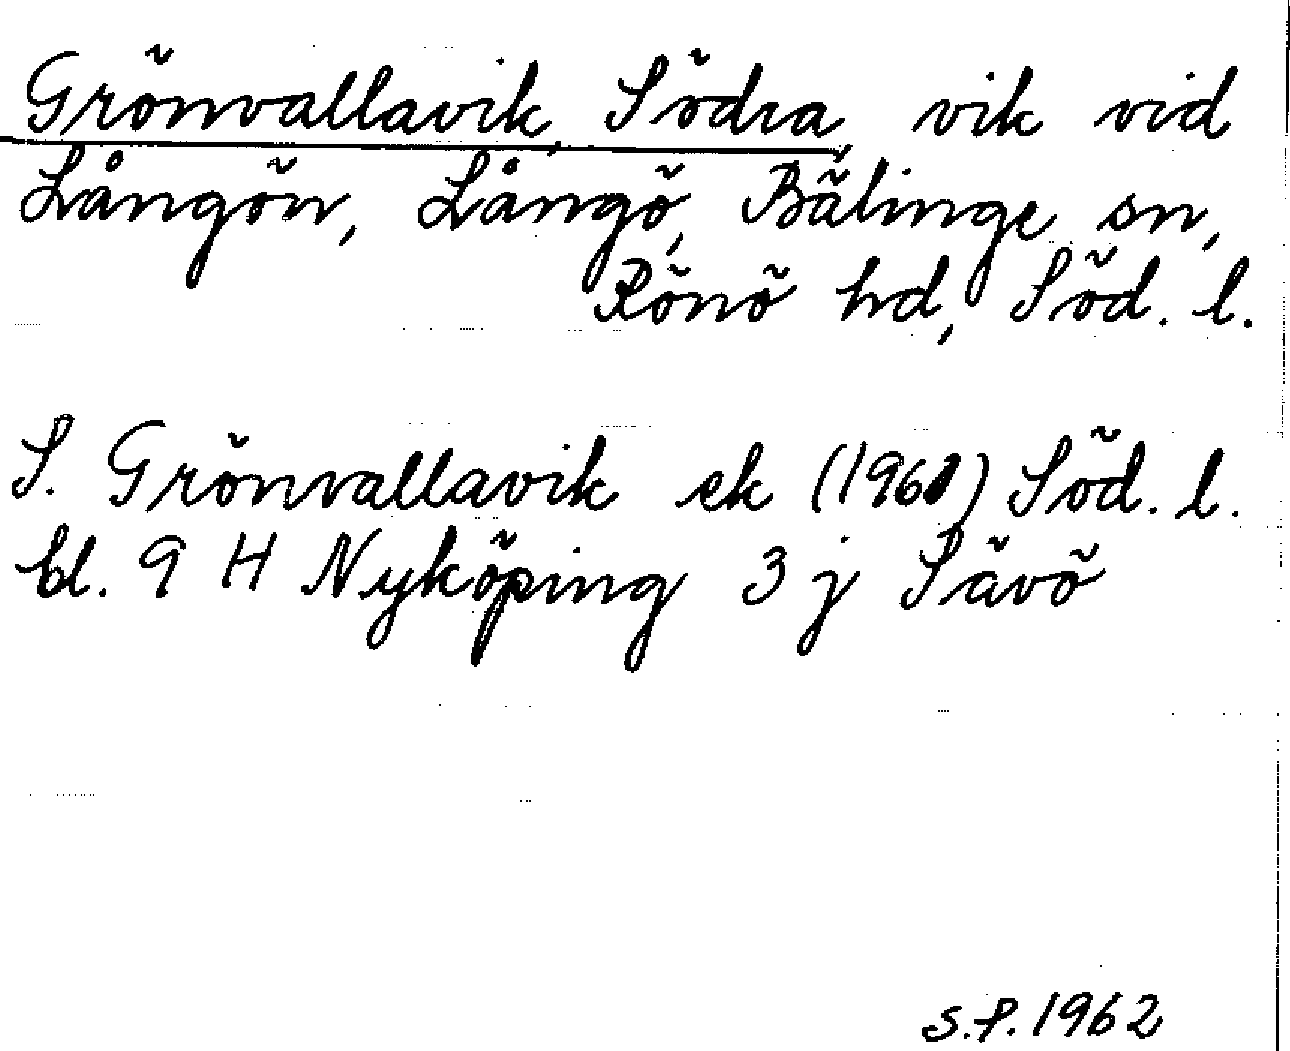 Grönvallavik, Södra, vik vid
Långön, Långö, Bälinge sn,
Rönö hd, Söd. l.
S. Grönvallavik ek (1961) Söd. l.
bl. 9 H Nyköping 3 j Sävö
S.P. 1962